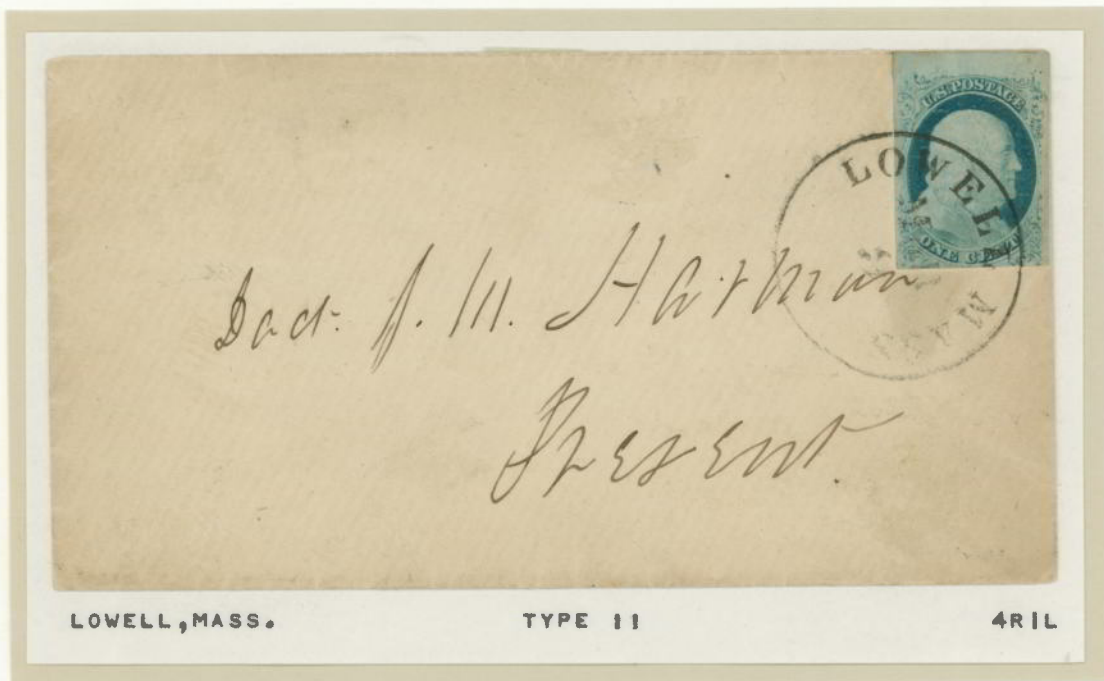 U.S. POSTAGE
ONE CENT
LOWELL
MASS
Doct. J. M. Harman
Present.
LOWELL,MASS. TYPE II 4R1L